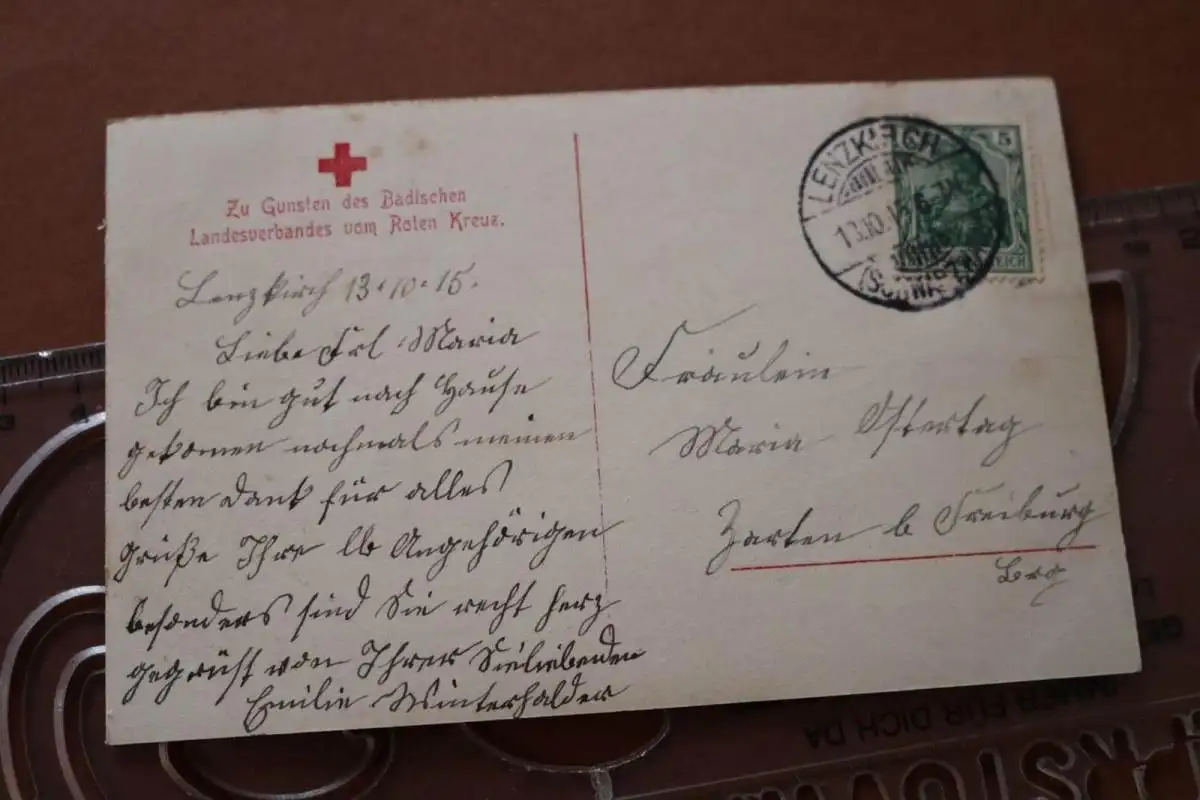 Zu Gunsten des Badischen
Landesverbandes vom Roten Kreuz.
Lenzkirch 13.10.15.
Liebe Frl Maria
Ich bin gut nach Hause
gekomen nochmals meinen
besten Dank für alles
grüße Ihre lb Angehörigen
besonders sind Sie recht herz
gegrüßt von Ihrer Sieliebenden
Emilie Winterhalder
LENZKIRCH
13.10.15.6-7N
(SCHWARZWALD)
5
REICH
Fräulein
Maria Ostertag
Zarten b Freiburg
Brg
IMMER FÜR DICH DA